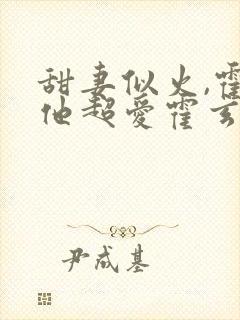 甜妻似火,霍
他超爱霍玄
尹成基